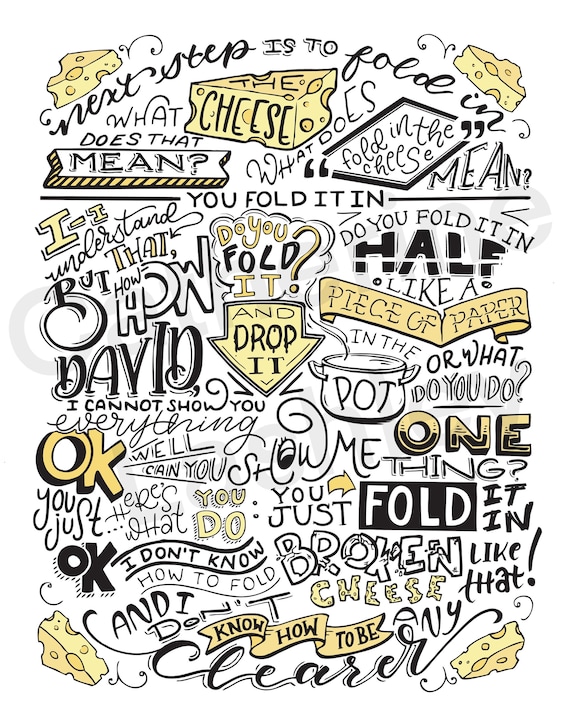 next step IS TO fold in
THE CHEESE
WHAT DOES THAT MEAN?
WHAT DOES "fold in the cheese" MEAN?
YOU FOLD IT IN
I-I understand THAT,
BUT HOW HOW DAVID,
Do you FOLD IT?
DO YOU FOLD IT IN HALF
LIKE A PIECE OF PAPER
AND DROP IT
IN THE POT
OR WHAT DO YOU DO?
I CANNOT SHOW YOU everything
OK WELL CAN YOU SHOW ME ONE THING?
you just... HERE'S what YOU DO:
YOU JUST FOLD IT IN
OK I DON'T KNOW HOW TO FOLD
BROKEN CHEESE LIKE that!
AND I DON'T KNOW HOW TO BE ANY
Clearer